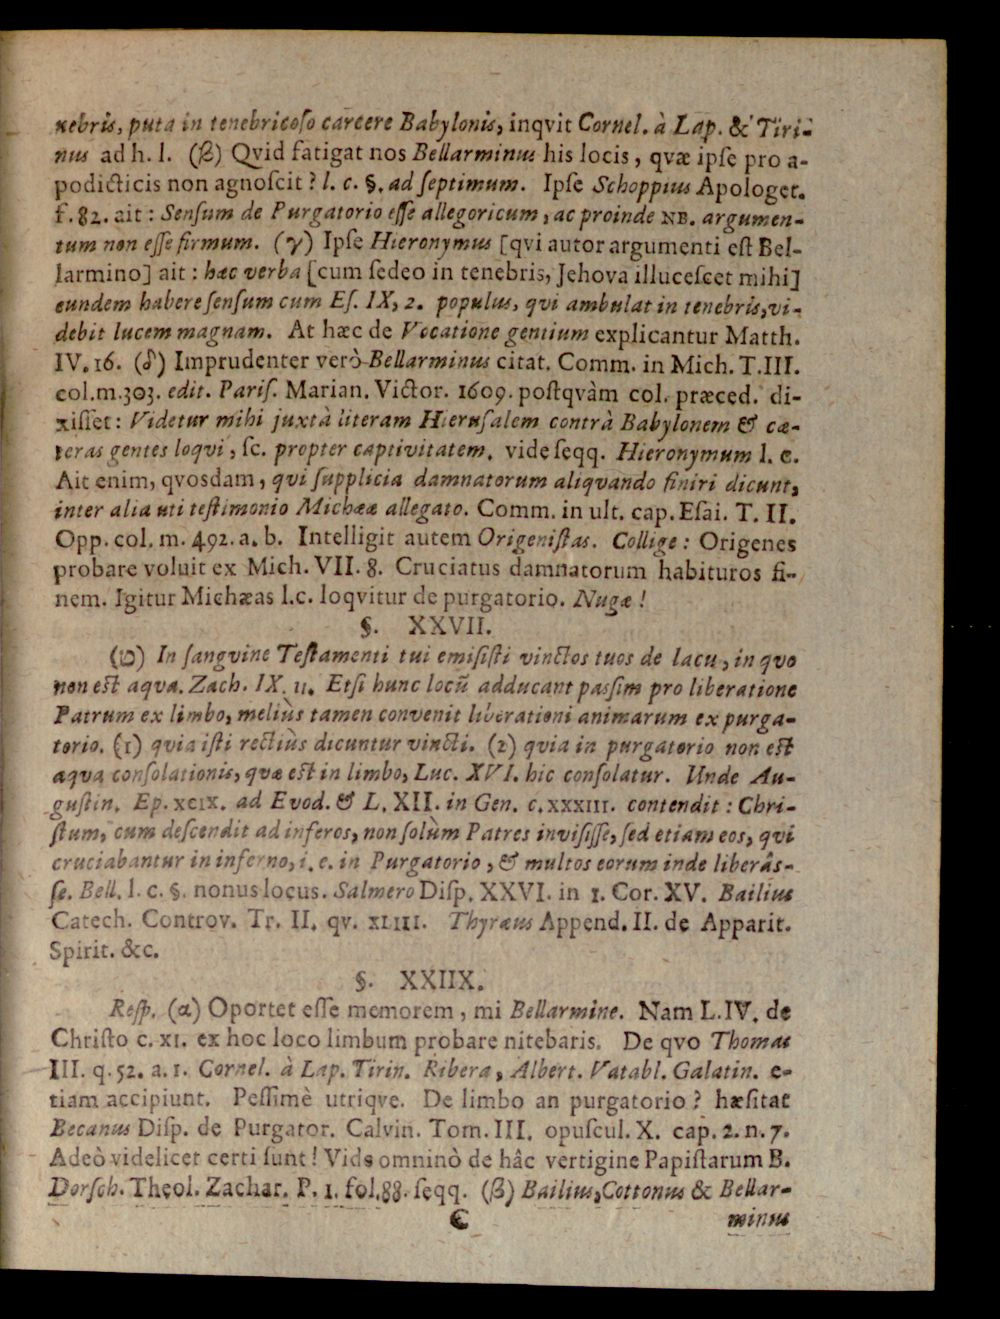 nebris, puta in tenebricoso carcere Babylonis, inqvit Cornel. à Lap. & Tiri-
nus ad h. l. (β) Qvid fatigat nos Bellarminus his locis, qvæ ipse pro a-
podicticis non agnoscit? l. c. §. ad septimum. Ipse Schoppius Apologet.
f. 82. ait: Sensum de Purgatorio esse allegoricum, ac proinde NB. argumen-
tum non esse firmum. (γ) Ipse Hieronymus [qvi autor argumenti est Bel-
larmino] ait: hæc verba [cum sedeo in tenebris, Jehova illucescet mihi]
eundem habere sensum cum Es. IX, 2. populus, qvi ambulat in tenebris, vi-
debit lucem magnam. At hæc de Vocatione gentium explicantur Matth.
IV. 16. (δ) Imprudenter verò Bellarminus citat. Comm. in Mich. T. III.
col. m. 303. edit. Paris. Marian. Victor. 1609. postqvàm col. præced. di-
xisset: Videtur mihi juxtà literam Hierusalem contrà Babylonem & cæ-
teras gentes loqvi, sc. propter captivitatem. vide seqq. Hieronymum l. c.
Ait enim, qvosdam, qvi supplicia damnatorum aliqvando finiri dicunt,
inter alia uti testimonio Michææ allegato. Comm. in ult. cap. Esai. T. II.
Opp. col. m. 492. a. b. Intelligit autem Origenistas. Collige: Origenes
probare voluit ex Mich. VII. 8. Cruciatus damnatorum habituros fi-
nem. Igitur Michæas l. c. loqvitur de purgatorio. Nugæ!
§. XXVII.
(ט) In sangvine Testamenti tui emisisti vinctos tuos de lacu, in qvo
non est aqva. Zach. IX. 11. Etsi hunc locũ adducant passim pro liberatione
Patrum ex limbo, meliùs tamen convenit liberationi animarum ex purga-
torio. (1) qvia isti rectiùs dicuntur vincti. (2) qvia in purgatorio non est
aqva consolationis, qvæ est in limbo, Luc. XVI. hic consolatur. Unde Au-
gustin. Ep. XCIX. ad Evod. & L. XII. in Gen. c. XXXIII. contendit: Chri-
stum, cum descendit ad inferos, non solùm Patres invisisse, sed etiam eos, qvi
cruciabantur in inferno, i. e. in Purgatorio, & multos eorum inde liberâs-
se. Bell. l. c. §. nonus locus. Salmero Disp. XXVI. in 1. Cor. XV. Bailius
Catech. Controv. Tr. II. qv. XLIII. Thyræus Append. II. de Apparit.
Spirit. &c.
§. XXIIX.
Resp. (α) Oportet esse memorem, mi Bellarmine. Nam L. IV. de
Christo c. XI. ex hoc loco limbum probare nitebaris. De qvo Thomas
III. q. 52. a. 1. Cornel. à Lap. Tirin. Ribera, Albert. Vatabl. Galatin. e-
tiam accipiunt. Pessimè utriqve. De limbo an purgatorio? hæsitat
Becanus Disp. de Purgator. Calvin. Tom. III. opuscul. X. cap. 2. n. 7.
Adeò videlicet certi sunt! Vide omninò de hâc vertigine Papistarum B.
Dorsch. Theol. Zachar. P. 1. fol. 88. seqq. (β) Bailius, Cottonus & Bellar-
C minus